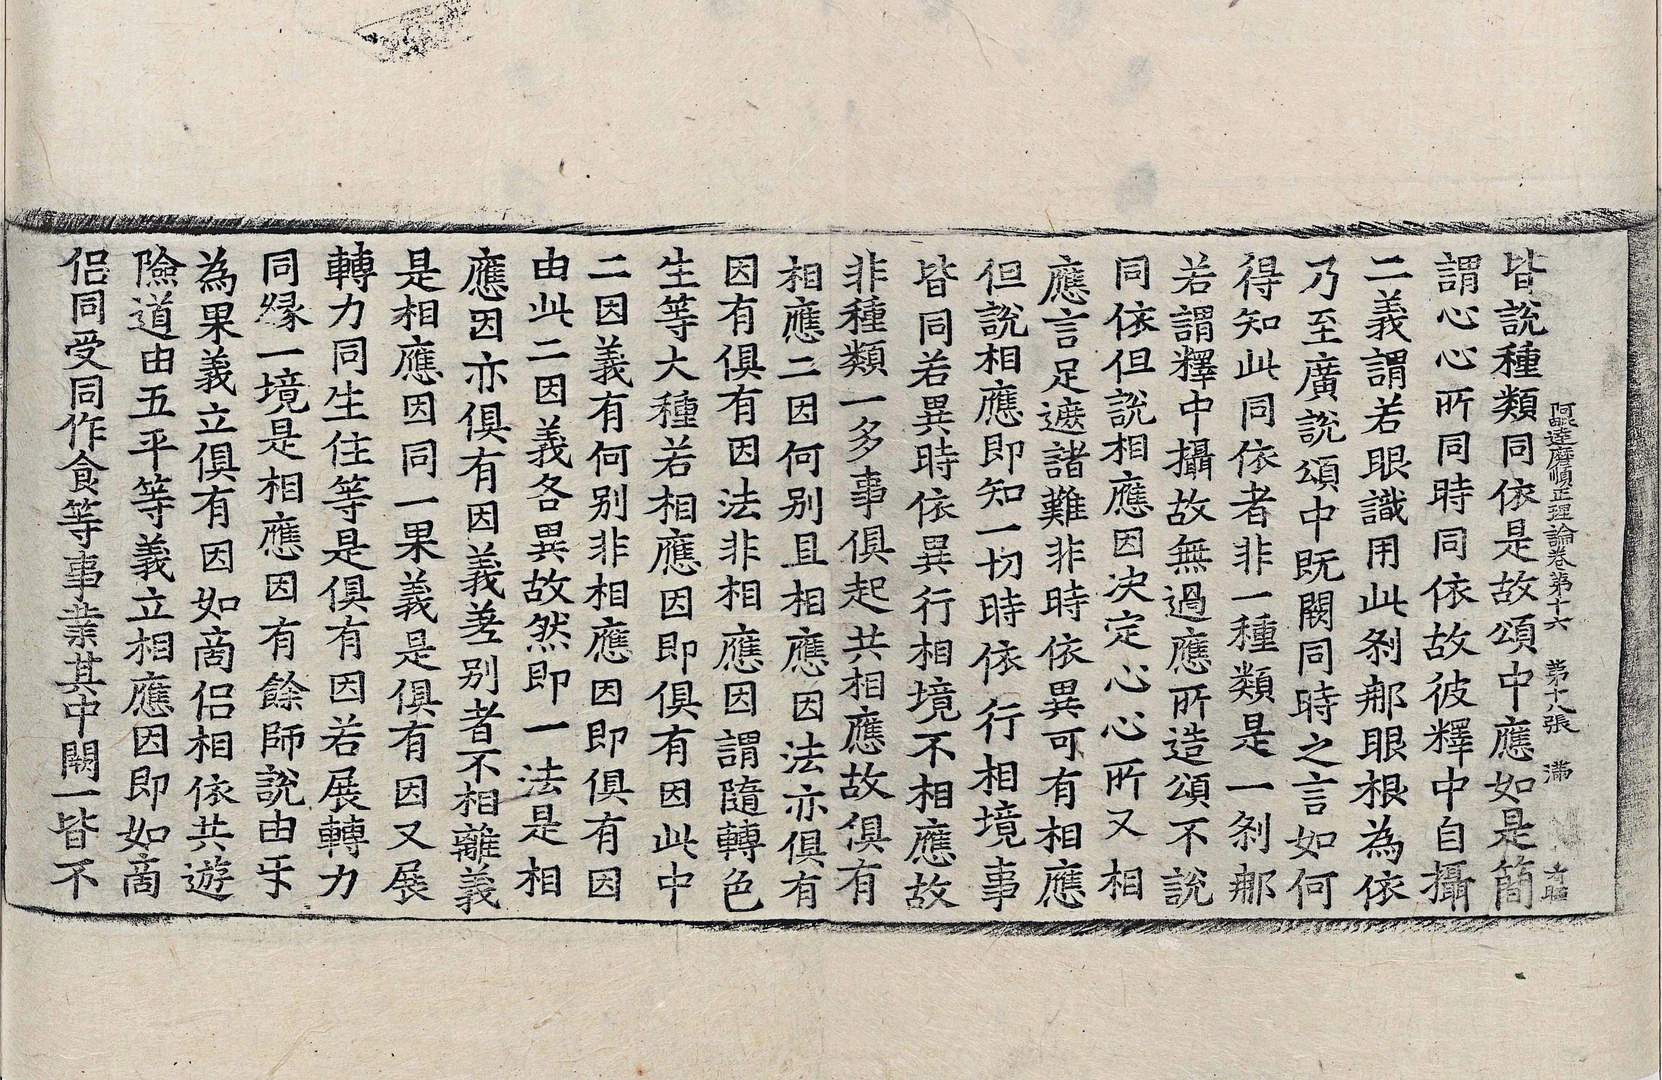 阿毗達磨順正理論卷第十六　第十八張　滿
皆說種類同依是故頌中應如是簡
謂心心所同時同依故彼釋中自攝
二義謂若眼識用此剎那眼根為依
乃至廣說頌中既闕同時之言如何
得知此同依者非一種類是一剎那
若謂釋中攝故無過應所造頌不說
同依但說相應因決定心心所又相
應言足遮諸難非時依異可有相應
但說相應即知一切時依行相境事
皆同若異時依異行相境不相應故
非種類一多事俱起共相應故俱有
相應二因何別且相應因法亦俱有
因有俱有因法非相應因謂隨轉色
生等大種若相應因即俱有因此中
二因義有何別非相應因即俱有因
由此二因義各異故然即一法是相
應因亦俱有因義差別者不相離義
是相應因同一果義是俱有因又展
轉力同生住等是俱有因若展轉力
同緣一境是相應因有餘師說由互
為果義立俱有因如商侶相依共遊
險道由五平等義立相應因即如商
侶同受同作食等事業其中闕一皆不